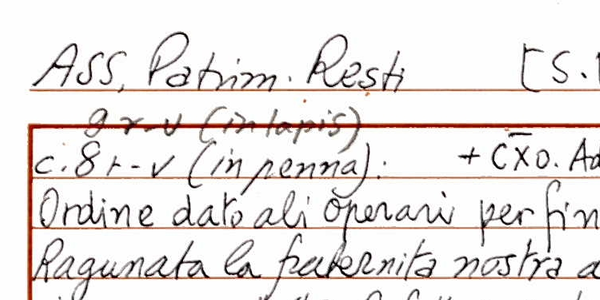 Ass. Patrim. Resti [S.
9 r-v (in lapis)
c. 8 r-v (in penna): + CX̅o. Ad
Ordine dato ali operari per fin
Ragunata la fraternita nostra a